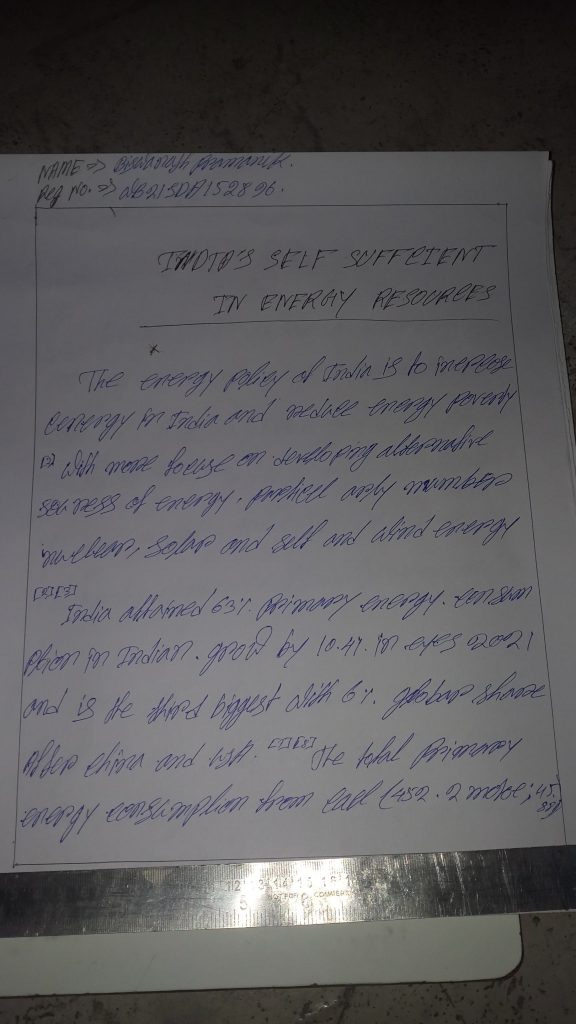 NAME => Biswanath Pramanik.
Reg No. => 
INDIA'S SELF SUFFCIENT
IN ENERGY RESOURCES
The energy policy of India is to increase
energy in India and reduce energy poverty
with more focuse on developing alternative
of energy. only number
nuclear, solar and self and wind energy
India attained 63%. Primary energy. consum
ption in Indian. grow by 10.4%. in 2021
and is the third biggest with 6%. global share
After china and USA. The total Primary
energy consumption from (452.2 ; 45.